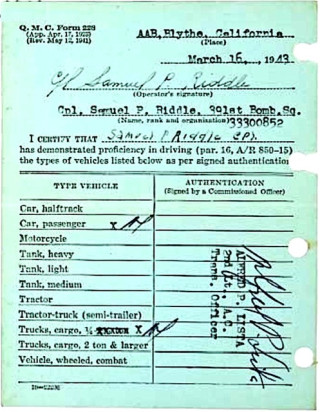 Q. M. C. Form 228
(App. Apr. 17, 1922)
(Rev. May 12, 1941)
AAB, Blythe, California
(Place)
March 16, 1943
Samuel P. Riddle
(Operator's signature)
Cpl. Samuel P. Riddle, 391st Bomb. Sq.
(Name, rank and organization) 33300852
I CERTIFY THAT Samuel P Riddle Cpl.
has demonstrated proficiency in driving (par. 16, A/R 850-15)
the types of vehicles listed below as per signed authentication
TYPE VEHICLE
AUTHENTICATION
(Signed by a Commissioned Officer)
Car, halftrack
Car, passenger X
Motorcycle
Tank, heavy
Tank, light
Tank, medium
Tractor
Tractor-truck (semi-trailer)
Trucks, cargo, X
Trucks, cargo, 2 ton & larger
Vehicle, wheeled, combat
ALFRED P.
2nd Lt., A.C.
Trans. Officer